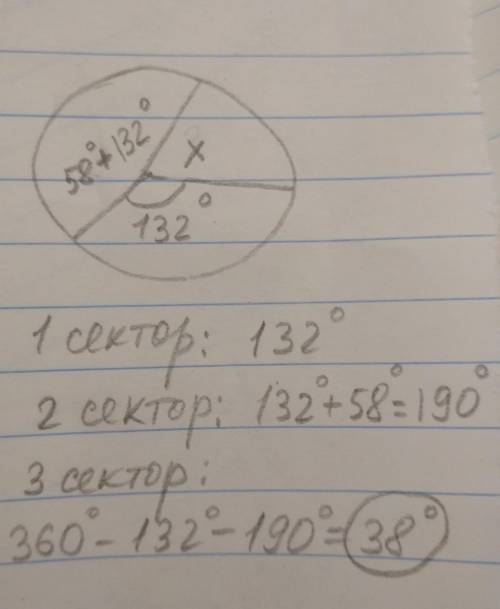 58°+132°
x
132°
1 сектор: 132°
2 сектор: 132°+58°=190°
3 сектор:
360°-132°-190°=38°